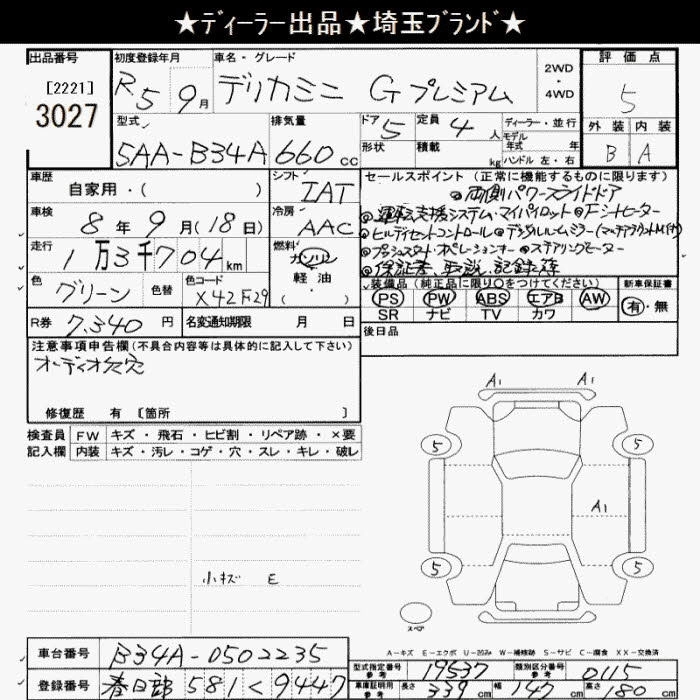 ★ディーラー出品★埼玉ブランド★
出品番号
[2221]
3027
初度登録年月
R5 9月
車名・グレード
デリカミニ Gプレミアム
2WD
・
4WD
評価点
5
外装 内装
B A
型式
5AA-B34A
排気量
660cc
ドア 5
形状
定員 4人
積載 kg
ディーラー・並行
モデル
年式 年
ハンドル 左・右
車歴
自家用・( )
シフト
IAT
車検
8年9月(18日)
冷房
AAC
走行
1万3千704km
燃料
ガソリン
軽油
( )
色
グリーン
色替
色コード
X42F29
R券 7,340円
名変通知期限 月 日
セールスポイント(正常に機能するものに限ります)
◎両側パワースライドドア
◎運転支援システム・マイパイロット ◎Fシートヒーター
◎ヒルディセントコントロール ◎デジタルルームミラー(マルチアラウンドM付)
◎プッシュスタート・オペレーションキー ◎ステアリングヒーター
◎保証書、取説、記録簿
装備品(純正品に限り○をつけてください)
PS PW ABS エアB AW
SR ナビ TV カワ
新車保証書
有・無
後日品
注意事項申告欄(不具合内容等は具体的に記入して下さい)
オーディオ欠穴
修復歴 有 [箇所 ]
検査員 FW キズ・飛石・ヒビ割・リペア跡・×要
記入欄 内装 キズ・汚レ・コゲ・穴・スレ・キレ・破レ
小キズ E
A1 A1
5 5
A1
5 5
スペア
A-キズ E-エクボ U-凹み W-補修跡 S-サビ C-腐食 XX-交換済
車台番号 B34A-0502235
登録番号 春日部 581 く 9447
型式指定番号
参考
19537
類別区分番号
参考
0115
車庫証明用
参考
長さ 339cm 幅 147cm 高さ 180cm